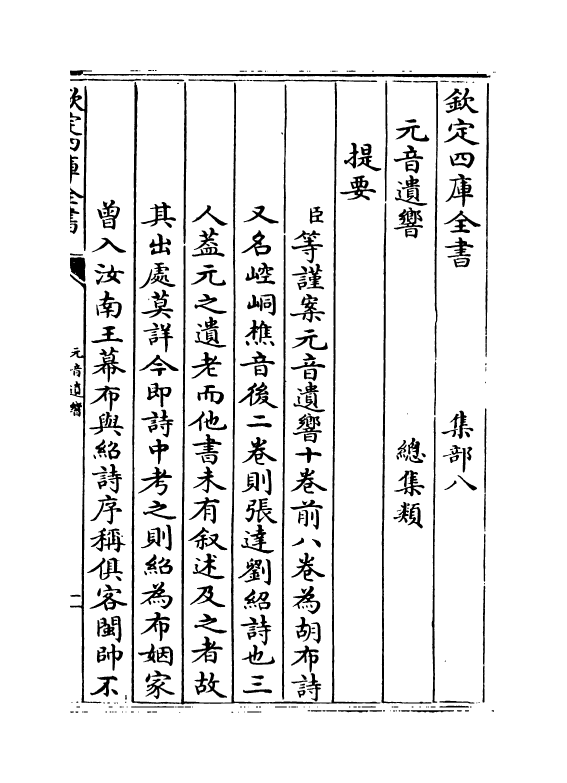 欽定四庫全書　　　集部八
元音遺響　　　總集類
提要
臣等謹案元音遺響十卷前八卷為胡布詩
又名崆峒樵音後二卷則張達劉紹詩也三
人葢元之遺老而他書未有叙述及之者故
其出處莫詳今即詩中考之則紹為布姻家
曾入汝南王幕布與紹詩序稱俱客閩帥不
欽定四庫全書
元音遺響